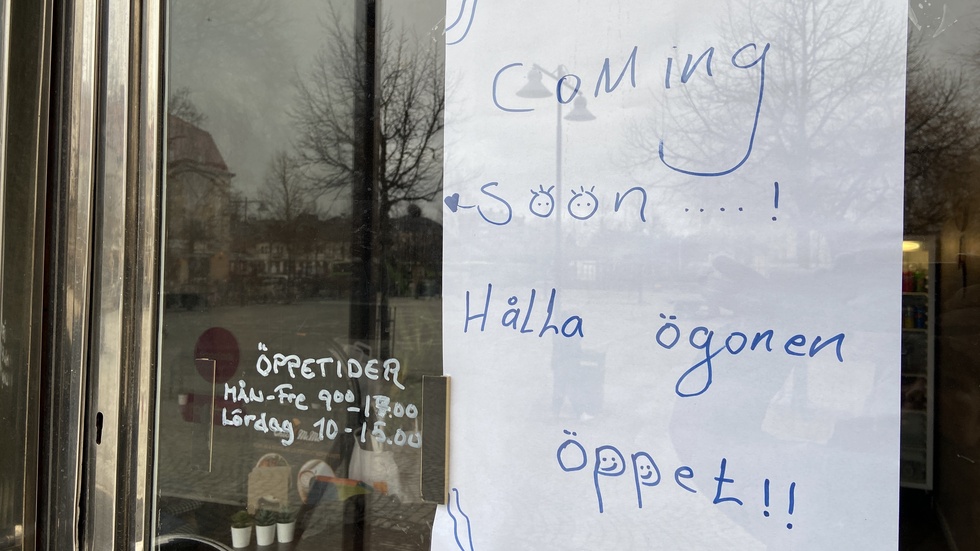 Coming
soon ....!
Hålla ögonen
öppet!!
ÖPPETIDER
MÅN-Fre 9⁰⁰-17.00
Lördag 10-15.00